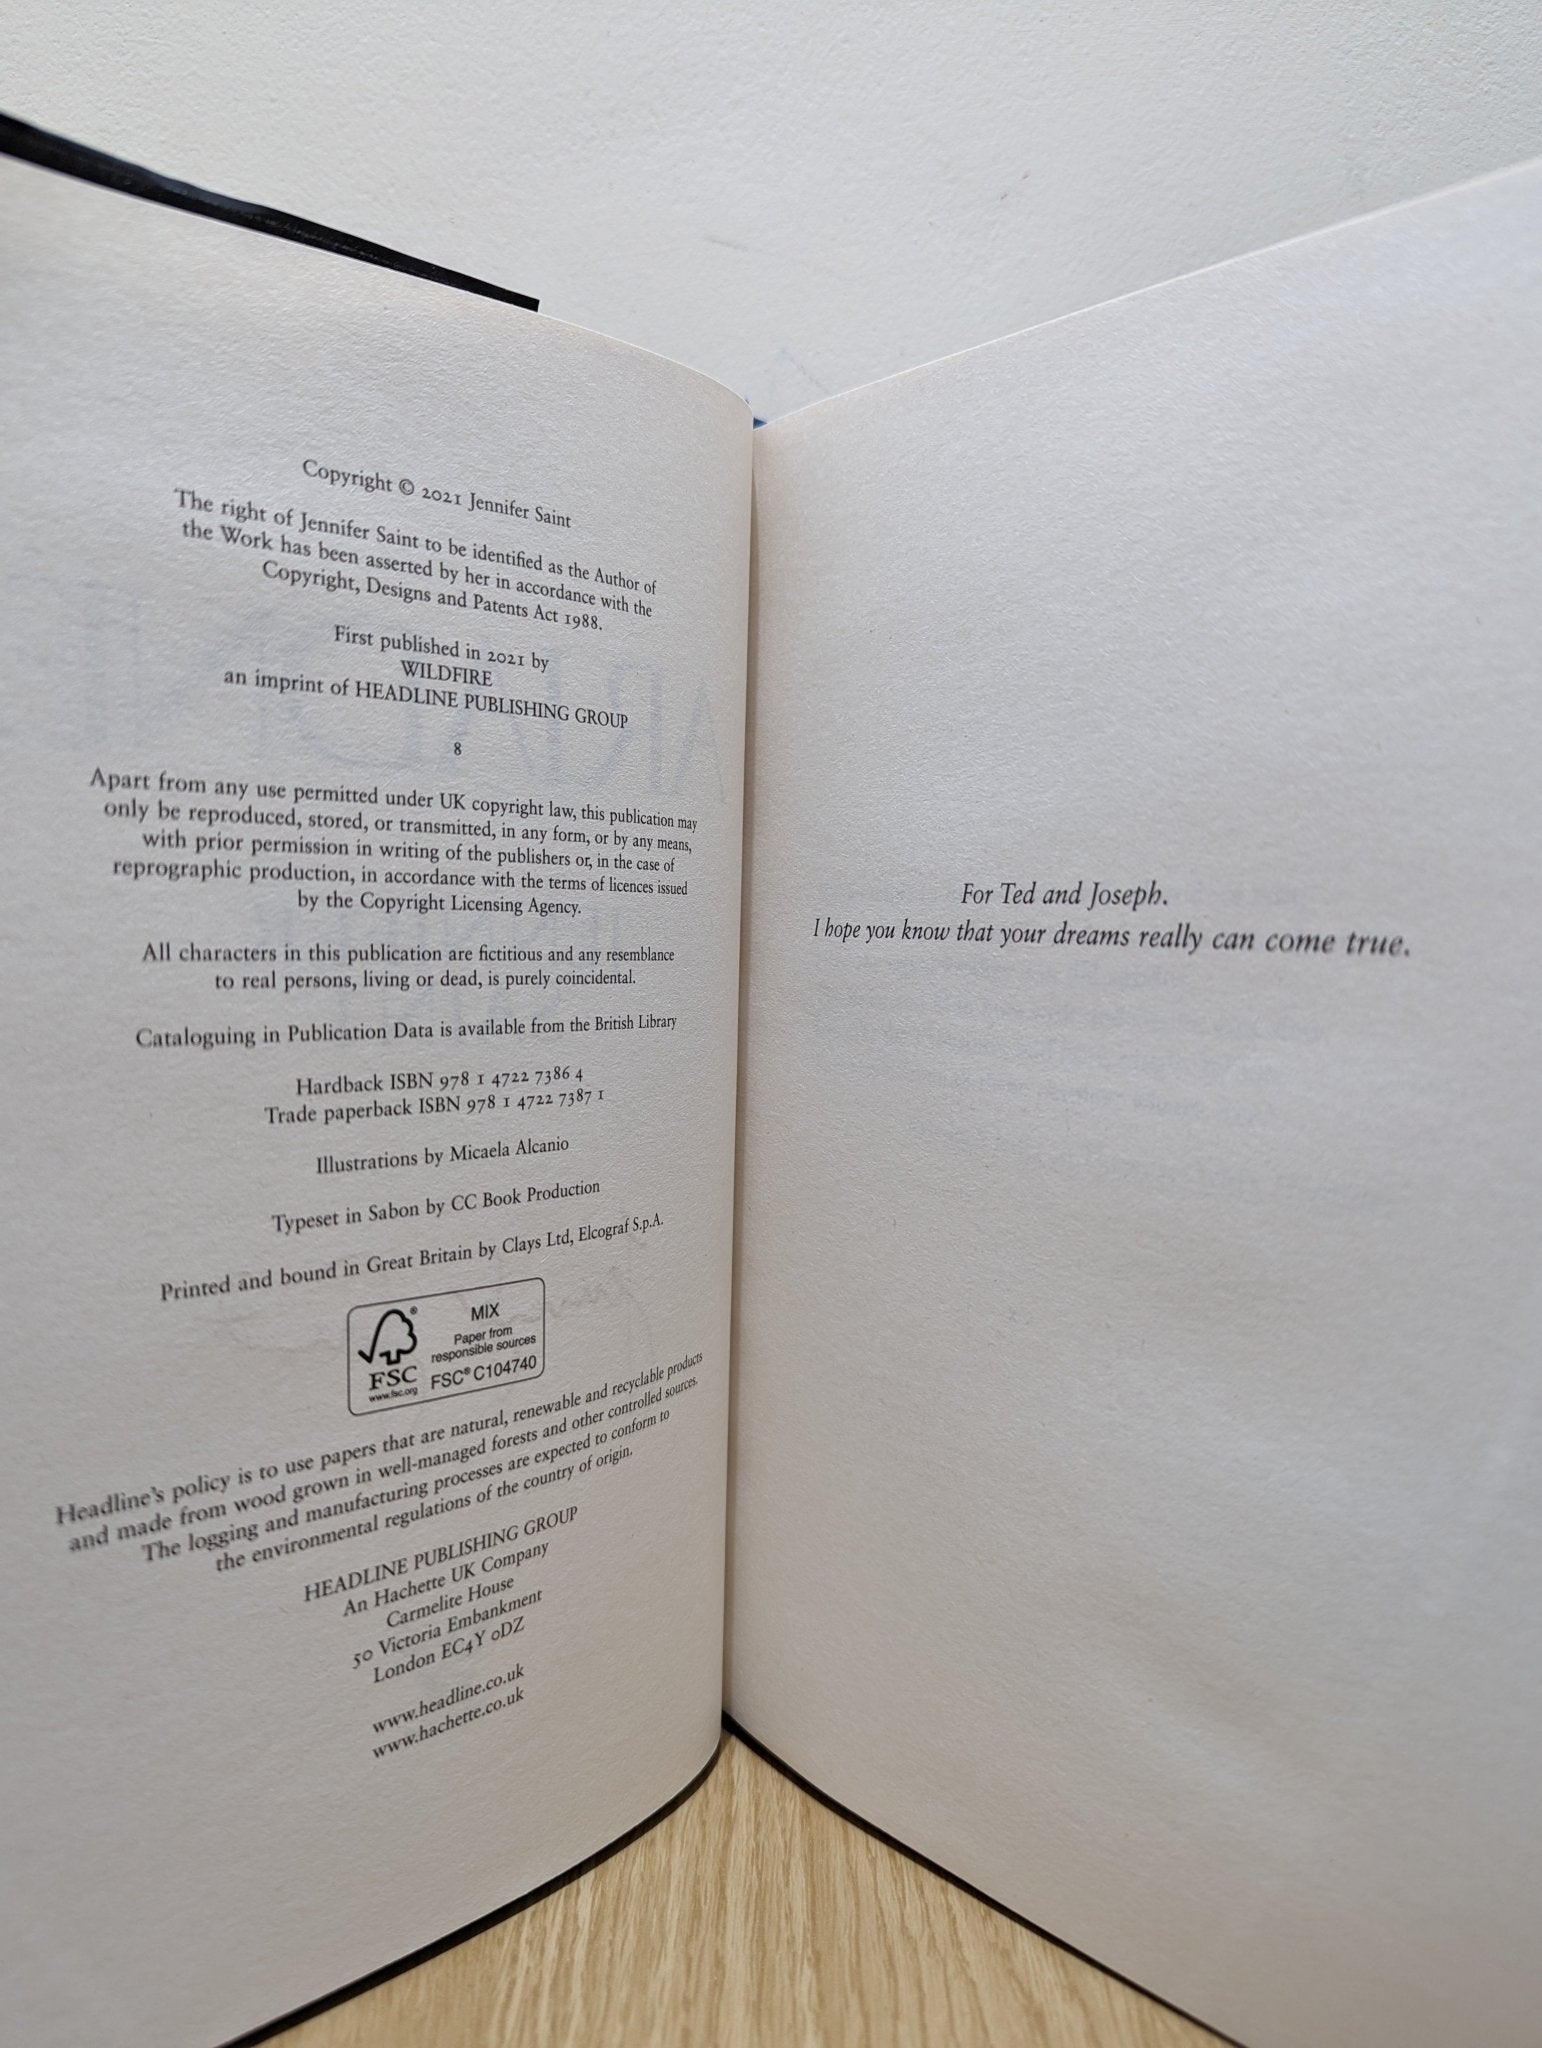 Copyright © 2021 Jennifer Saint
The right of Jennifer Saint to be identified as the Author of
the Work has been asserted by her in accordance with the
Copyright, Designs and Patents Act 1988.
First published in 2021 by
WILDFIRE
an imprint of HEADLINE PUBLISHING GROUP
8
Apart from any use permitted under UK copyright law, this publication may
only be reproduced, stored, or transmitted, in any form, or by any means,
with prior permission in writing of the publishers or, in the case of
reprographic production, in accordance with the terms of licences issued
by the Copyright Licensing Agency.
All characters in this publication are fictitious and any resemblance
to real persons, living or dead, is purely coincidental.
Cataloguing in Publication Data is available from the British Library
Hardback ISBN 978 1 4722 7386 4
Trade paperback ISBN 978 1 4722 7387 1
Illustrations by Micaela Alcanio
Typeset in Sabon by CC Book Production
Printed and bound in Great Britain by Clays Ltd, Elcograf S.p.A.
®
FSC
www.fsc.org
MIX
Paper from
responsible sources
FSC® C104740
Headline's policy is to use papers that are natural, renewable and recyclable products
and made from wood grown in well-managed forests and other controlled sources.
The logging and manufacturing processes are expected to conform to
the environmental regulations of the country of origin.
HEADLINE PUBLISHING GROUP
An Hachette UK Company
Carmelite House
50 Victoria Embankment
London EC4Y 0DZ
www.headline.co.uk
www.hachette.co.uk
For Ted and Joseph.
I hope you know that your dreams really can come true.